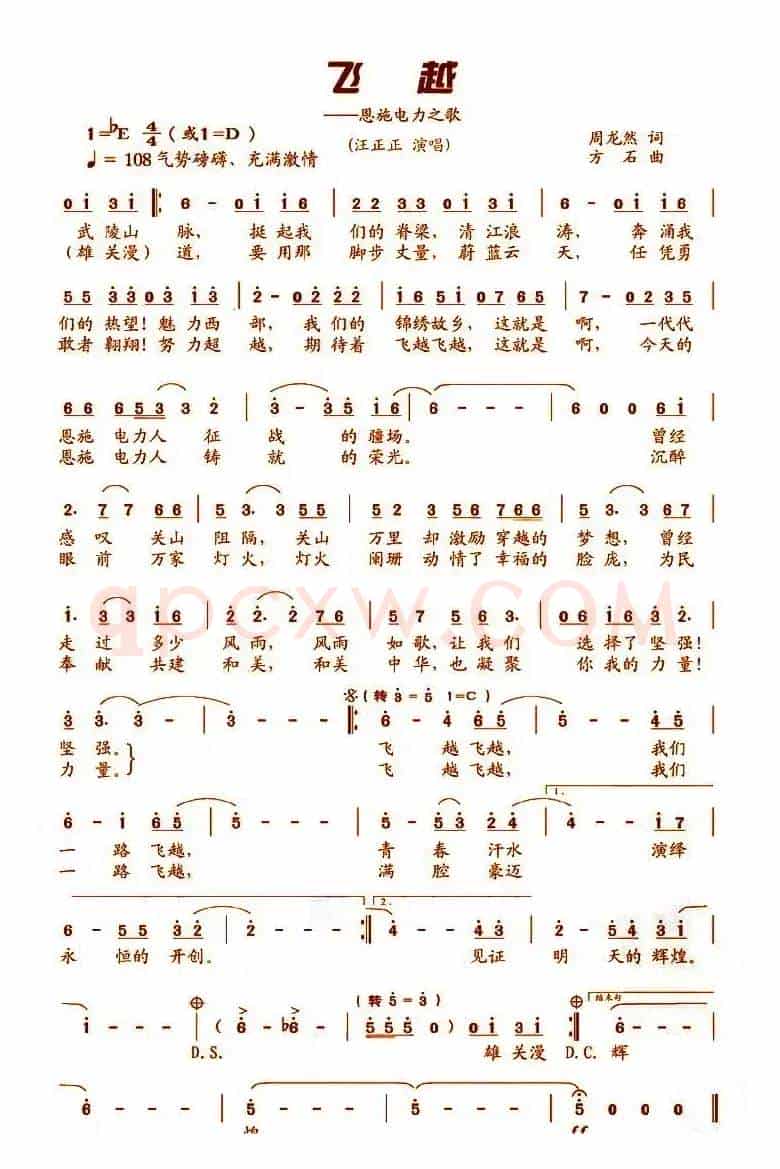 飞 越
——恩施电力之歌
1=♭E 4/4 (或1=D)
(汪正正 演唱)
周龙然 词
♩= 108 气势磅礴、充满激情
方 石 曲
武 陵山 脉, 挺 起我 们的 脊梁, 清 江浪 涛, 奔 涌我
(雄 关漫) 道, 要 用那 脚步 丈量, 蔚 蓝云 天, 任 凭勇
们的 热望! 魅 力西 部, 我 们的 锦绣故乡, 这就是 啊, 一代代
敢者 翱翔! 努 力超 越, 期 待着 飞越飞越, 这就是 啊, 今天的
恩施 电力人 征 战 的 疆场。 曾经
恩施 电力人 铸 就 的 荣光。 沉醉
感 叹 关山 阻隔, 关山 万里 却 激励 穿越的 梦 想, 曾经
眼 前 万家 灯火, 灯火 阑珊 动 情了 幸福的 脸 庞, 为民
qpcxw.com
走 过 多少 风雨, 风雨 如歌, 让 我 们 选 择了 坚强!
奉 献 共建 和美, 和美 中华, 也 凝 聚 你 我的 力量!
𝄋 (转 3=5 1=C)
坚 强。 飞 越 飞越, 我们
力 量。 飞 越 飞越, 我们
1.
一 路 飞越, 青 春 汗水 演绎
一 路 飞越, 满 腔 豪迈
2.
永 恒的 开创。 见证 明 天的 辉煌。
(转 5=3)
结束句
D.S. 雄 关漫 D.C. 辉
煌
ff